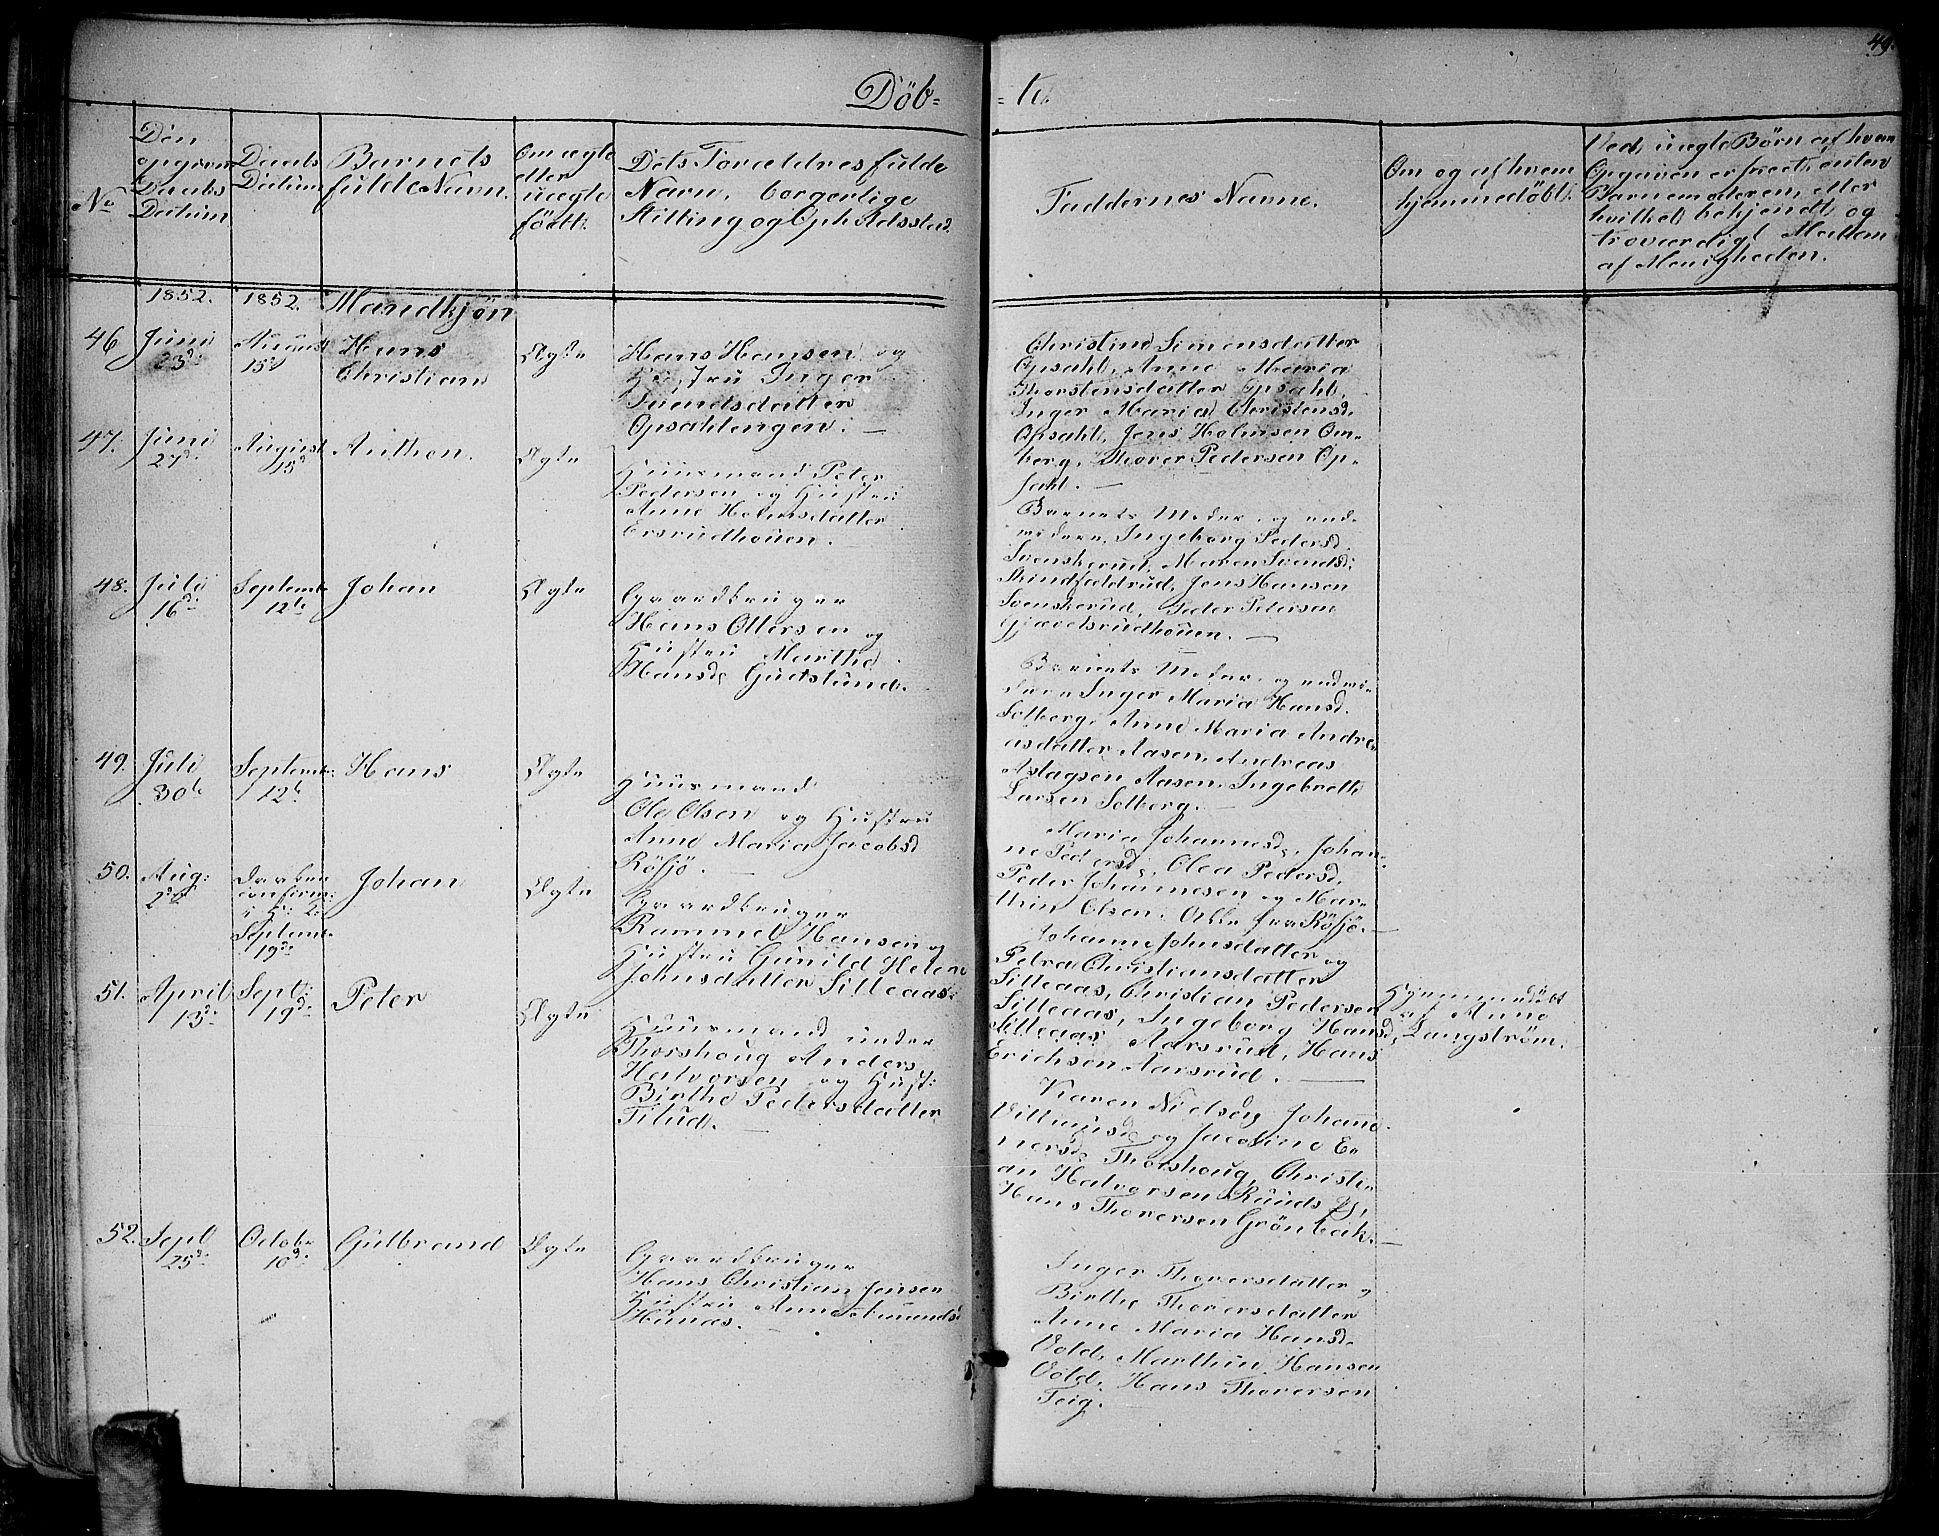 49.
Döb=
=te.
No
Den
opgivne
Daabs
Datum
Daabs
Datum
Barnets
fulde Navn.
Om ægte
eller
uægte
født.
Dets Forældres fulde
Navn, borgerlige
Stilling og Opholdssted.
Faddernes Navne.
Om og af hvem
hjemmedöbt.
Ved uægte Børn af hvem
Opgaven er skeet, enten
Barnemoderen, eller
hvilket bekjendt og
troværdigt Medlem
af Menigheden.
1852.
1852.
Mandkjön
46
Juni
23d:
August
15d
Hans
Christian
Ægte
Hans Hansen og
Hustru Inger
Opsahlengen. —
Christine Simensdatter
Opsahl, Anne Maria
Thorstensdatter Opsahl,
Inger Maria Christensd.
Opsahl, Jens Holmsen Om-
berg, Thorer Pedersen Op-
sahl. —
47.
Juni
27d:
August
15d
Anthon.
Ægte
Huusmand Peter
Pedersen og Hustru
Anne Holmsdatter
Ersrudhouen. —
Barnets Moder og end-
videre, Ingeborg Pedersd.
Svenskerud, Maren Svendsd:
Jens Hansen
Svenskerud, Peder Petersen
Gjævelsrudhouen. —
48.
Juli
16d:
Septembr
12te
Johan
Ægte
Gaardbruger
Hans Ottersen og
Hustru Marthe
Hansd. Gudslund.
Barnets Moder og endvi-
dere Inger Maria Hansd.
Solberg, Anne Maria Andre-
asdatter Aasen, Andreas
Aslagsen Aasen, Ingebreth
Larsen Solberg. —
49.
Juli
30te
Septembr:
12te
Hans
Ægte
Huusmand
Ole Olsen og Hustru
Anne Maria Jacobsd
Rösjö. —
Maria Johannesd., Johan-
ne Pedersd., Olea Pedersd.
Peder Johannesen og Mar-
thin Olsen. Alle fra Rösjö. —
50.
Aug:
2den
Daaben
September
19de
Johan
Ægte
Gaardbruger
Rammel Hansen og
Hustru Gunild Helene
Johnsdatter Silleaas.
Johanne Johnsdatter og
Petra Christiansdatter
Silleaas, Christian Pedersen
Silleaas, Ingeborg Hansd.
Silleaas Aarsrud, Hans
Erichsen Aarsrud. —
51.
April
13d:
Sept:
19d:
Peter
Ægte
Huusmand under
Thorshoug Anders
Halvorsen og Hust:
Birthe Pedersdatter
Tilud. —
Karen Nielsdg Johanne
Vilmusd. og Jacobine E-
nersd. Thorshoug, Christi-
an Halvorsen Ruuds
Hans Thorersen Grönbæk. —
Hjemmedöbt
af Anne
Langström.
52.
Sept
25d:
Octobr
10d:
Gulbrand
Ægte
Gaardbruger
Hans Christian Jensen
Hustru Anne Amundsd
Hunas. —
Inger Thorersdatter og
Birthe Thorersdatter
Anne Maria Hansd.
Vold, Marthin Hansen
Vold, Hans Thorersen
Teig.